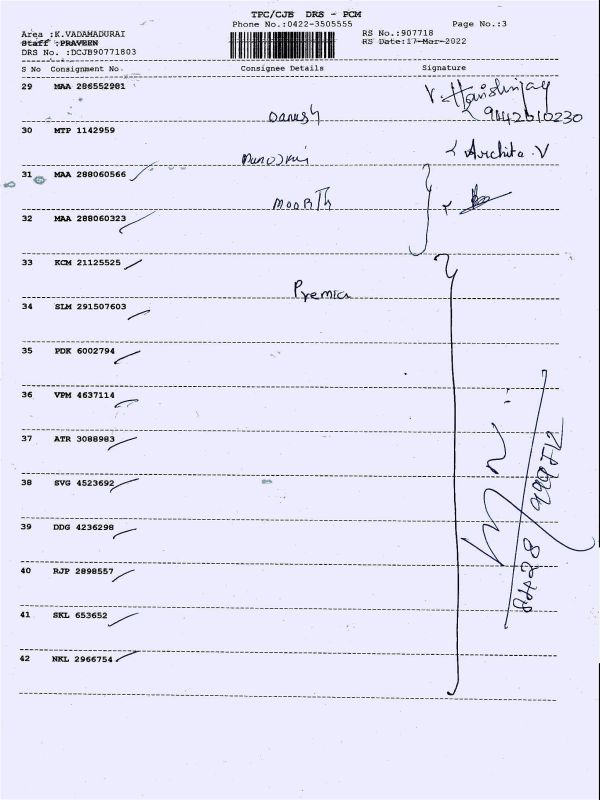 TPC/CJB DRS - PCM
Phone No.:0422-3505555 Page No.:3
Area :K.VADAMADURAI RS No.:907718
Staff :PRAVEEN RS Date:17-Mar-2022
DRS No. :DCJB90771803
S No Consignment No. Consignee Details Signature
29 MAA 286552981
Danush
9442610230
30 MTP 1142959
Archita.V
31 MAA 288060566
Moorth
32 MAA 288060323
33 KCM 21125525
Premia
34 SLM 291507603
35 PDK 6002794
36 VPM 4637114
37 ATR 3088983
38 SVG 4523692
39 DDG 4236298
40 RJP 2898557
41 SKL 653652
42 NKL 2966754